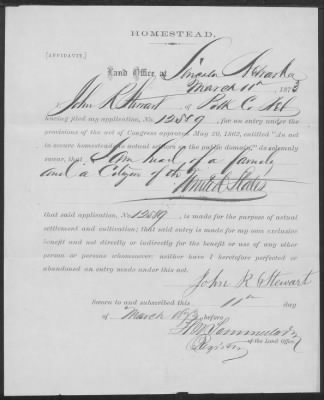 HOMESTEAD.
(AFFIDAVIT.)
Land Office, at Lincoln Nebraska
March 11th 1873
I, John R Stewart of Polk Co Neb
having filed my application, No. 12589, for an entry under the
provisions of the act of Congress approved May 20, 1862, entitled "An act
to secure homesteads to actual settlers on the public domain," do solemnly
swear, that I am head of a family
and a Citizen of the
United States
that said application, No. 12589, is made for the purpose of actual
settlement and cultivation; that said entry is made for my own exclusive
benefit and not directly or indirectly for the benefit or use of any other
person or persons whomsoever; neither have I heretofore perfected or
abandoned an entry made under this act.
John R Stewart
Sworn to and subscribed this 11th day
of March 1873 before
Register of the Land Office.